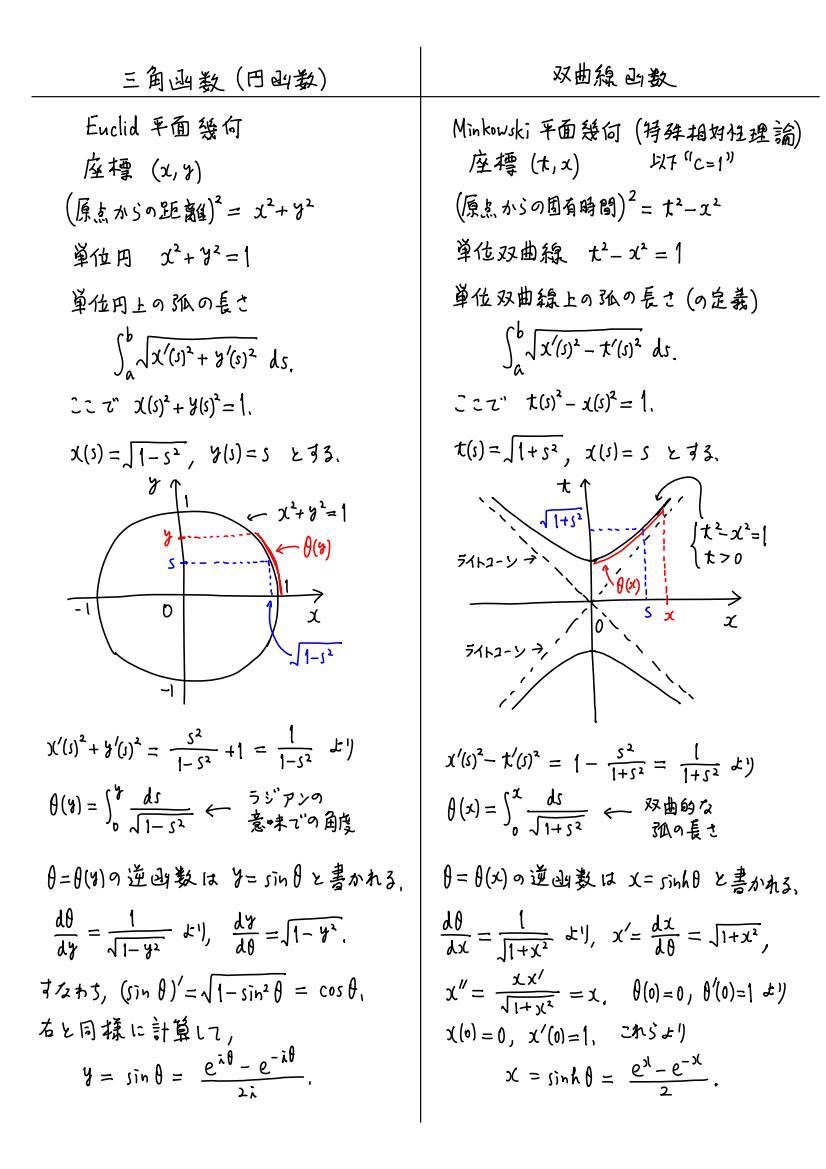 三角函数(円函数)
Euclid 平面幾何
座標 (x, y)
(原点からの距離)² = x² + y²
単位円 x² + y² = 1
単位円上の弧の長さ
∫_a^b √(x'(s)² + y'(s)²) ds.
ここで x(s)² + y(s)² = 1.
x(s) = √(1-s²), y(s) = s とする.
y
1
x² + y² = 1
y
θ(y)
s
-1
0
1
x
√(1-s²)
-1
x'(s)² + y'(s)² = s²/(1-s²) + 1 = 1/(1-s²) より
θ(y) = ∫_0^y ds/√(1-s²) ← ラジアンの
意味での角度
θ=θ(y)の逆函数は y = sinθ と書かれる.
dθ/dy = 1/√(1-y²) より, dy/dθ = √(1-y²).
すなわち, (sin θ)' = √(1-sin²θ) = cosθ.
右と同様に計算して,
y = sinθ = (e^{iθ} - e^{-iθ})/2i.
双曲線函数
Minkowski 平面幾何 (特殊相対性理論)
座標 (t, x) 以下 "C=1"
(原点からの固有時間)² = t² - x²
単位双曲線 t² - x² = 1
単位双曲線上の弧の長さ (の定義)
∫_a^b √(x'(s)² - t'(s)²) ds.
ここで t(s)² - x(s)² = 1.
t(s) = √(1+s²), x(s) = s とする.
t
√(1+s²)
{ t² - x² = 1
t > 0
ライトコーン →
θ(x)
0
s
x
x
ライトコーン →
x'(s)² - t'(s)² = 1 - s²/(1+s²) = 1/(1+s²) より
θ(x) = ∫_0^x ds/√(1+s²) ← 双曲的な
弧の長さ
θ = θ(x) の逆函数は x = sinhθ と書かれる.
dθ/dx = 1/√(1+x²) より, x' = dx/dθ = √(1+x²),
x'' = xx'/√(1+x²) = x. θ(0)=0, θ'(0)=1 より
x(0)=0, x'(0)=1. これらより
x = sinhθ = (e^x - e^{-x})/2.